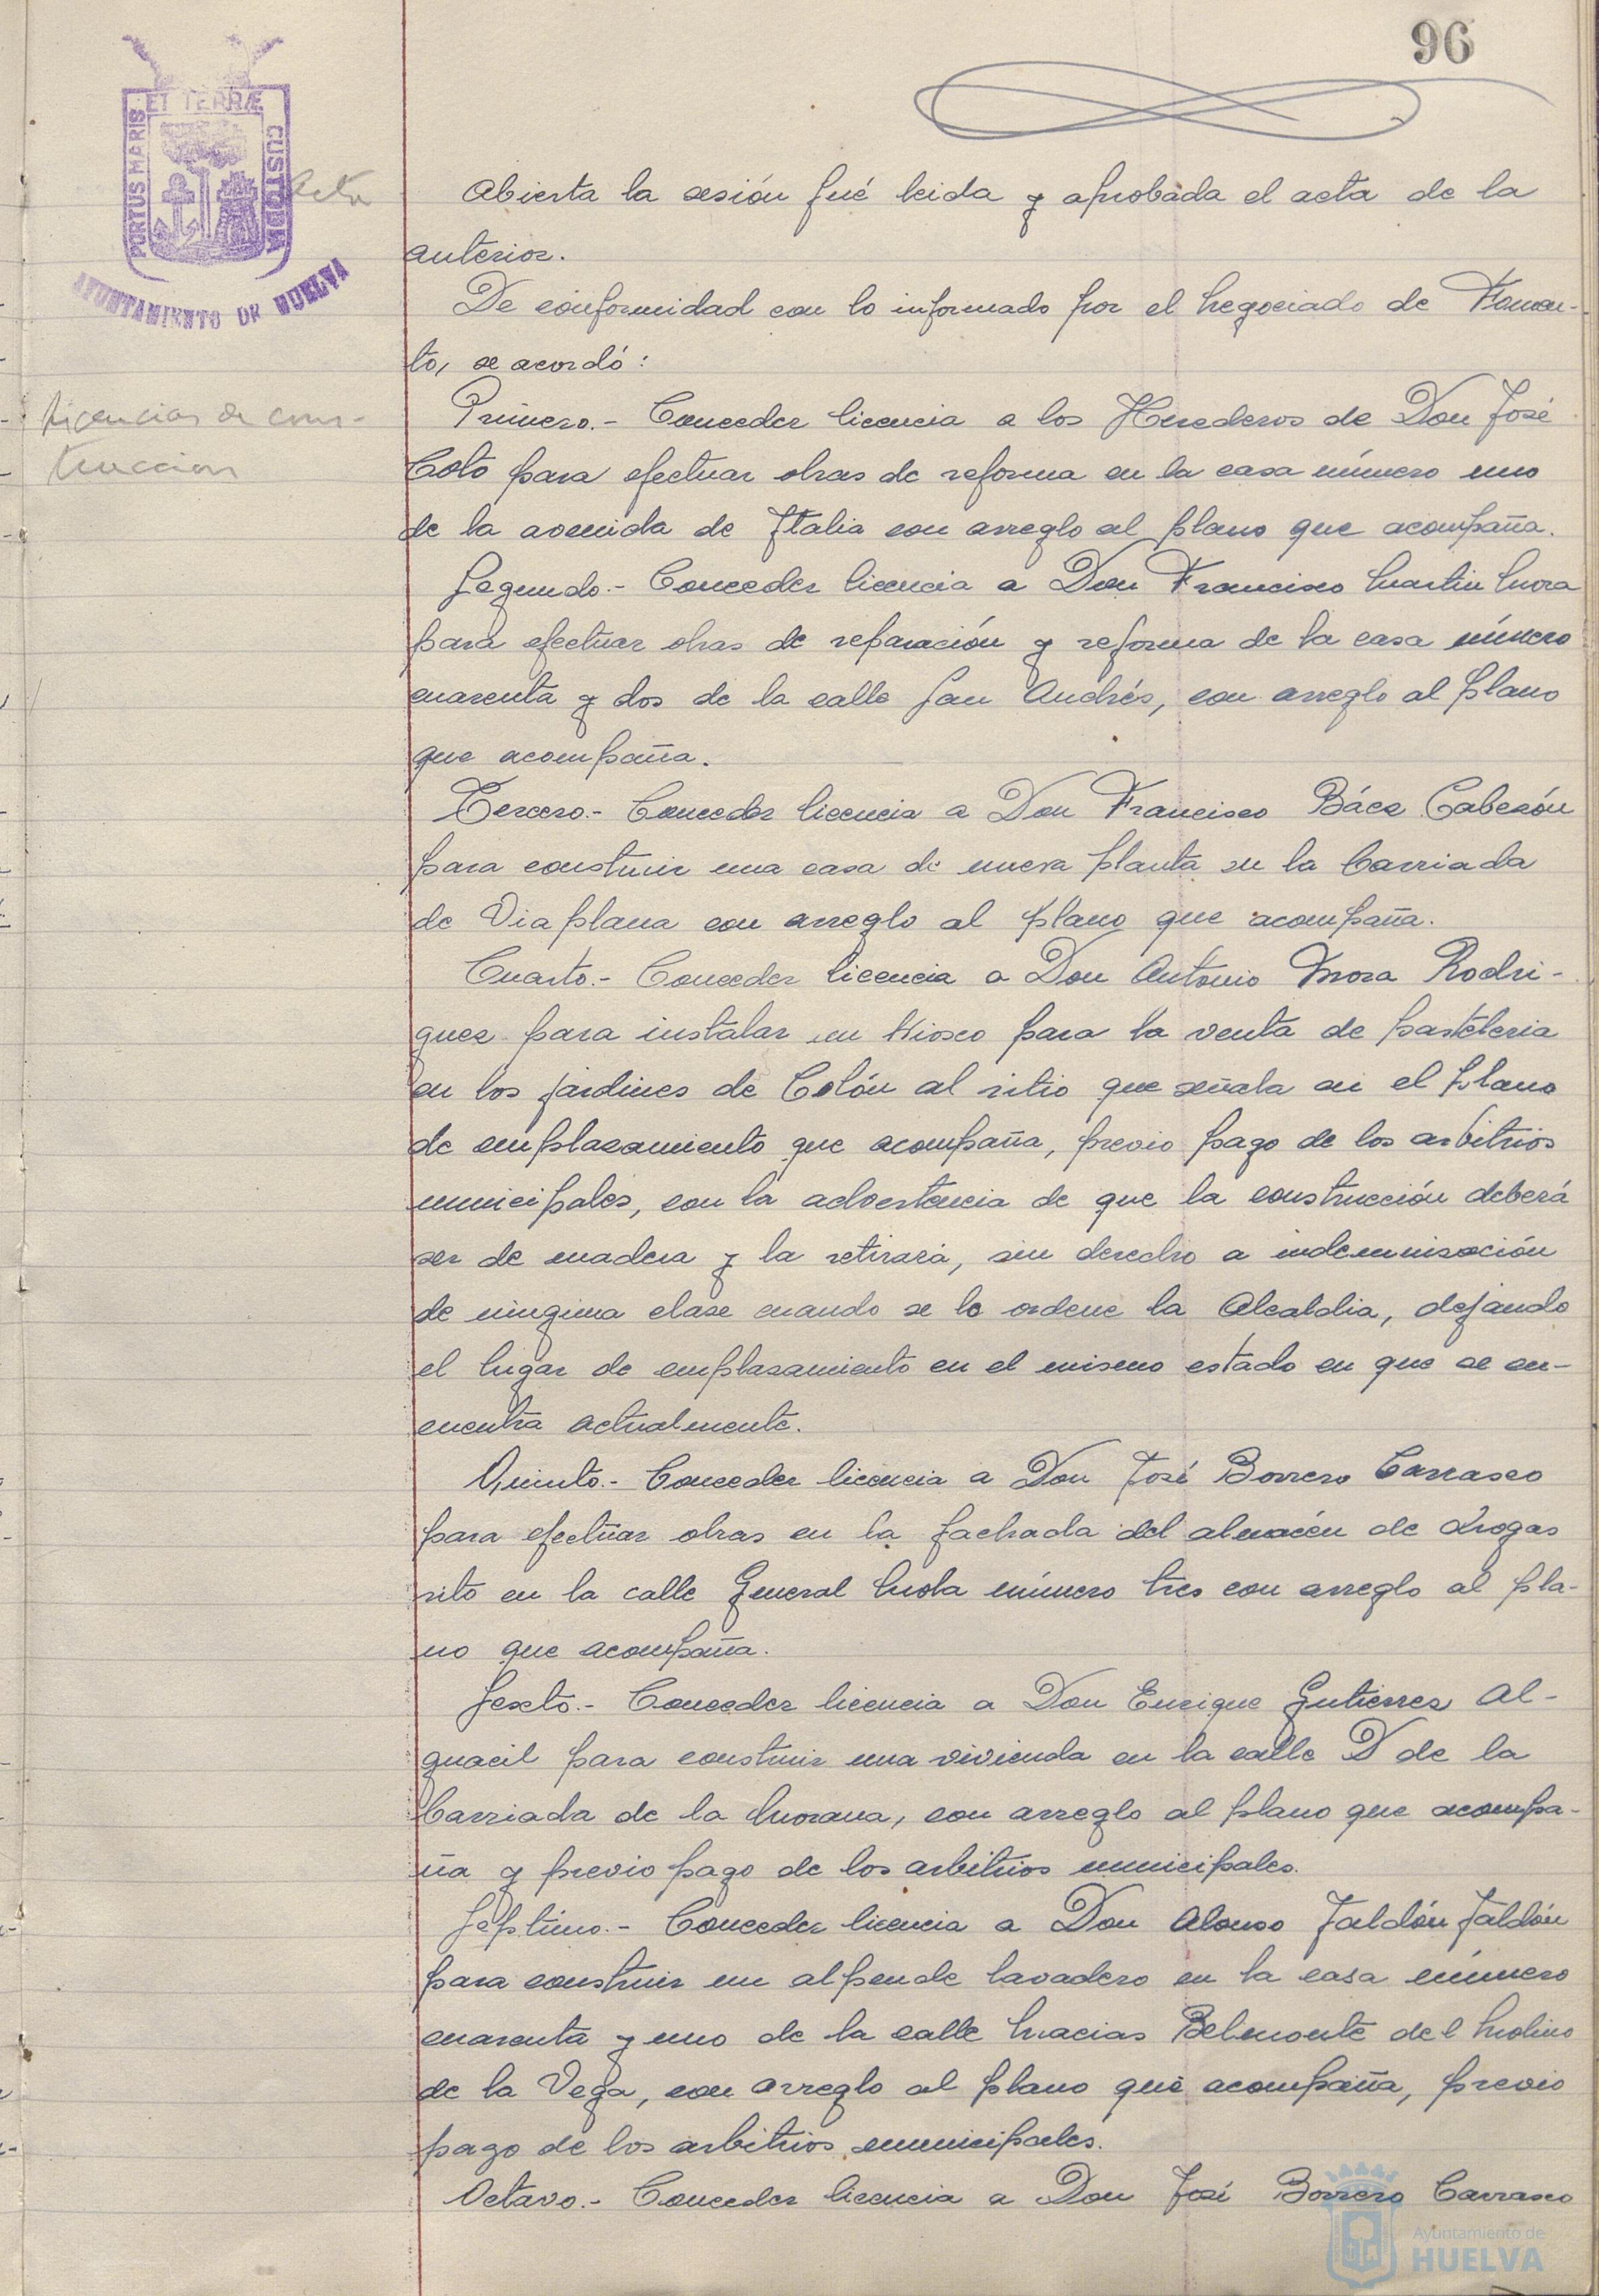 96
PORTUS MARIS ET TERRÆ CUSTODIA
AYUNTAMIENTO DE HUELVA
Acta
Abierta la sesión fué leida y aprobada el acta de la
anterior.
De conformidad con lo informado por el Negociado de Fomen-
to, se acordó:
Licencias de cons-
truccion
Primero.- Conceder licencia a los Herederos de Don José
Coto para efectuar obras de reforma en la casa número uno
de la avenida de Italia con arreglo al plano que acompaña.
Segundo.- Conceder licencia a Don Francisco Martin Mora
para efectuar obras de reparación y reforma de la casa número
cuarenta y dos de la calle San Andrés, con arreglo al plano
que acompaña.
Tercero.- Conceder licencia a Don Francisco Báez Cabezón
para construir una casa de nueva planta en la barriada
de Viaplana con arreglo al plano que acompaña.
Cuarto.- Conceder licencia a Don Antonio Mora Rodri-
guez para instalar un Kiosco para la venta de pasteleria
en los jardines de Colón al sitio que señala en el plano
de emplazamiento que acompaña, previo pago de los arbitrios
municipales, con la advertencia de que la construcción deberá
ser de madera y la retirará, sin derecho a indemnización
de ninguna clase cuando se lo ordene la Alcaldia, dejando
el lugar de emplazamiento en el mismo estado en que se en-
cuentra actualmente.
Quinto.- Conceder licencia a Don José Borrero Carrasco
para efectuar obras en la fachada del almacén de drogas
sito en la calle General Mola número tres con arreglo al pla-
no que acompaña.
Sexto.- Conceder licencia a Don Enrique Gutierrez Al-
guacil para construir una vivienda en la calle D de la
barriada de la Morana, con arreglo al plano que acompa-
ña y previo pago de los arbitrios municipales.
Septimo.- Conceder licencia a Don Alonso Jaldón Jaldón
para construir un alpende lavadero en la casa número
cuarenta y uno de la calle Macias Belmonte del Molino
de la Vega, con arreglo al plano que acompaña, previo
pago de los arbitrios municipales.
Octavo.- Conceder licencia a Don José Borrero Carrasco
Ayuntamiento de
HUELVA